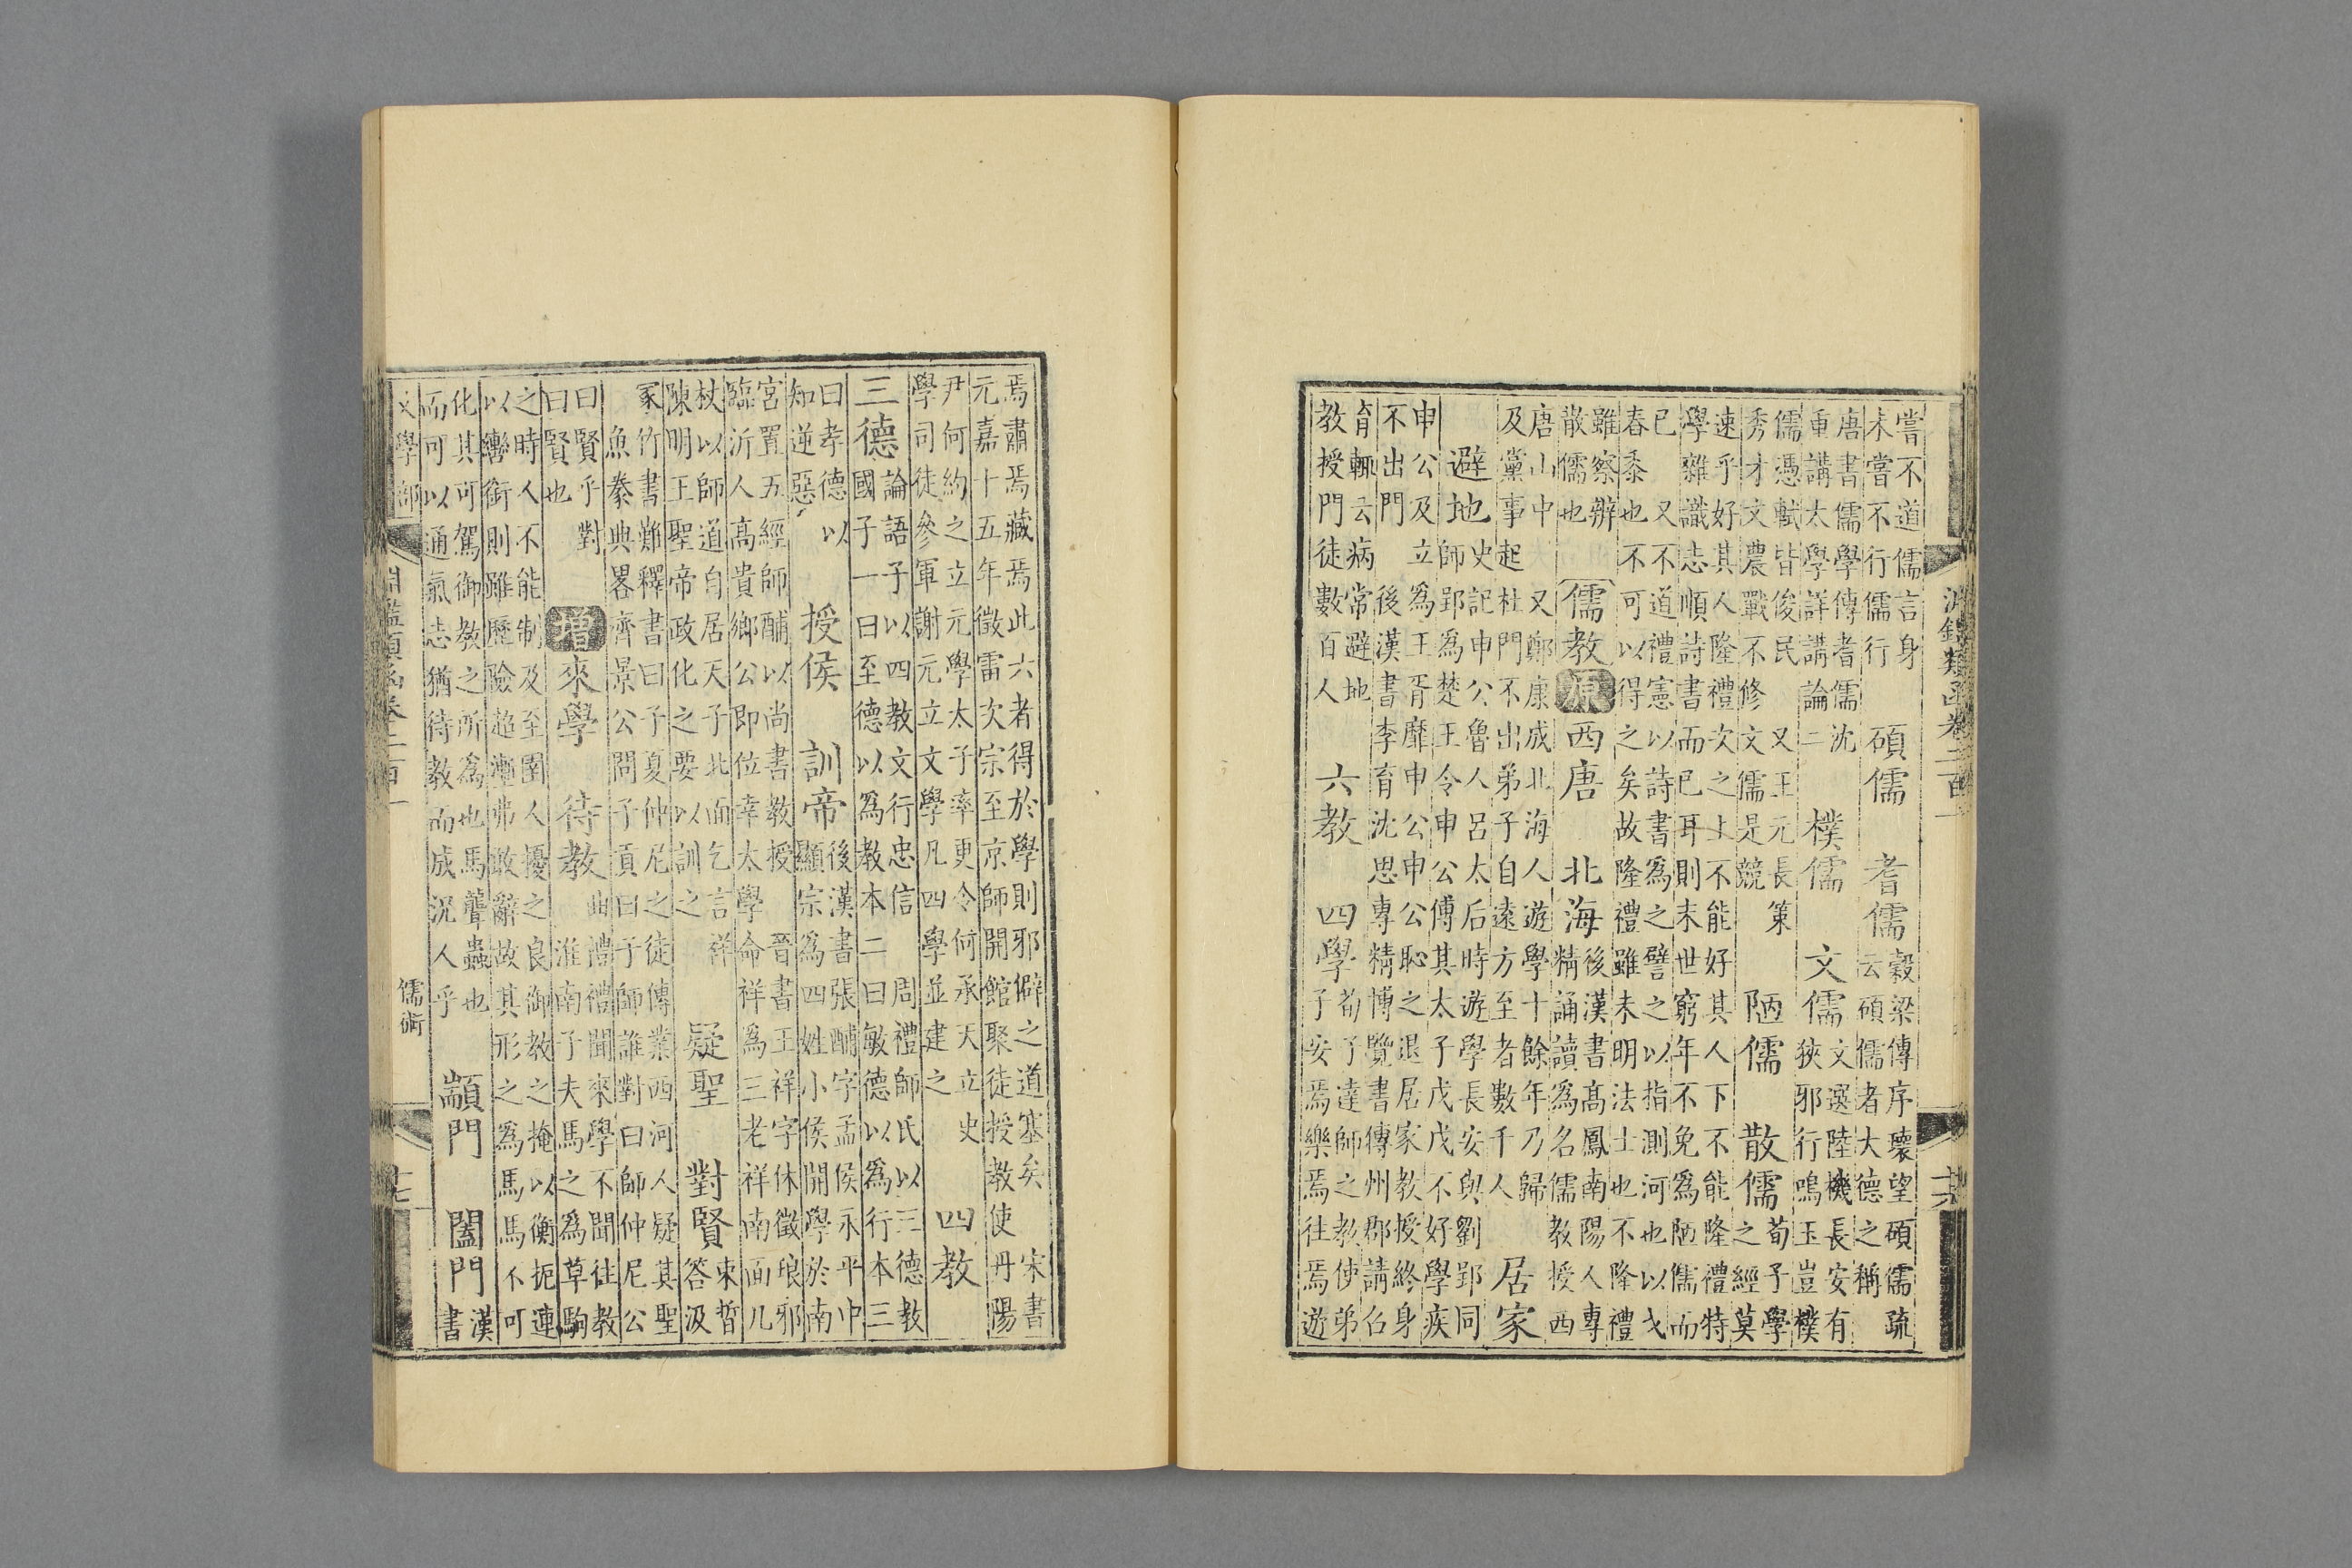 淵鑑類函卷二百一
十六
嘗不道儒言身
未嘗不行儒行
碩儒
耆儒
穀梁傳序壞望碩儒疏
云碩儒者大德之稱
唐書儒學傳耆儒沈
重講太學詳講論二
樸儒
文儒
文選陸機長安有
狹邪行鳴玉豈樸
儒憑軾皆俊民
又王元長策
秀才文農戰不修文儒是競
陋儒
散儒
荀子學
之經莫
速乎好其人隆禮次之上不能好其人下不能隆禮特
學雜識志順詩書而已耳則末世窮年不免爲陋儒而
已
又不道禮憲以詩書爲之譬之以指測河也以戈
春黍也不可以得之矣故隆禮雖未明法士也不隆禮
雖察辨
散儒也
儒教
原
西唐
北海
後漢書高鳳南陽人專
精誦讀爲名儒教授西
唐山中
又鄭康成北海人遊學十餘年乃歸
及黨事起杜門不出弟子自遠方至者數千人
居家
避地
史記申公魯人呂太后時遊學長安與劉郢同
師郢爲楚王令申公傅其太子戊戊不好學疾
申公及立爲王胥靡申公申公恥之退居家教授終身
不出門
後漢書李育沈思專精博覽書傳州郡請召
育輒云病常避地
教授門徒數百人
六教
四學
荀子達師之教使弟
子安焉樂焉往焉遊
焉肅焉藏焉此六者得於學則邪僻之道塞矣
宋書
元嘉十五年徵雷次宗至京師開館聚徒授教使丹陽
尹何約之立元學太子率更令何承天立史
學司徒參軍謝元立文學凡四學並建之
四教
三德
論語子以四教文行忠信
周禮師氏以三德教
國子一曰至德以爲教本二曰敏德以爲行本三
曰孝德以
知逆惡
授侯
訓帝
後漢書張酺字孟侯永平中
顯宗爲四姓小侯開學於南
宮置五經師酺以尚書教授
晉書王祥字休徵琅邪
臨沂人高貴鄉公即位幸太學命祥爲三老祥南面几
杖以師道自居天子北面乞言祥
陳明王聖帝政化之要以訓之
疑聖
對賢
束晳
答汲
冢竹書難釋書曰子夏仲尼之徒傳業西河人疑其聖
魚豢典畧齊景公問子貢曰子師誰對曰師仲尼公
曰賢乎對
曰賢也
增
來學
待教
曲禮禮聞來學不聞往教
淮南子夫馬之爲草駒
之時人不能制及至圉人擾之良御教之掩以衡扼連
以轡銜則雖歷險超塹弗敢辭故其形之爲馬馬不可
化其可駕御教之所爲也馬聾蟲也
而可以通氣志猶待教而成況人乎
顓門
闔門
漢
書
文學
淵鑑類函卷二百一
儒術
十七